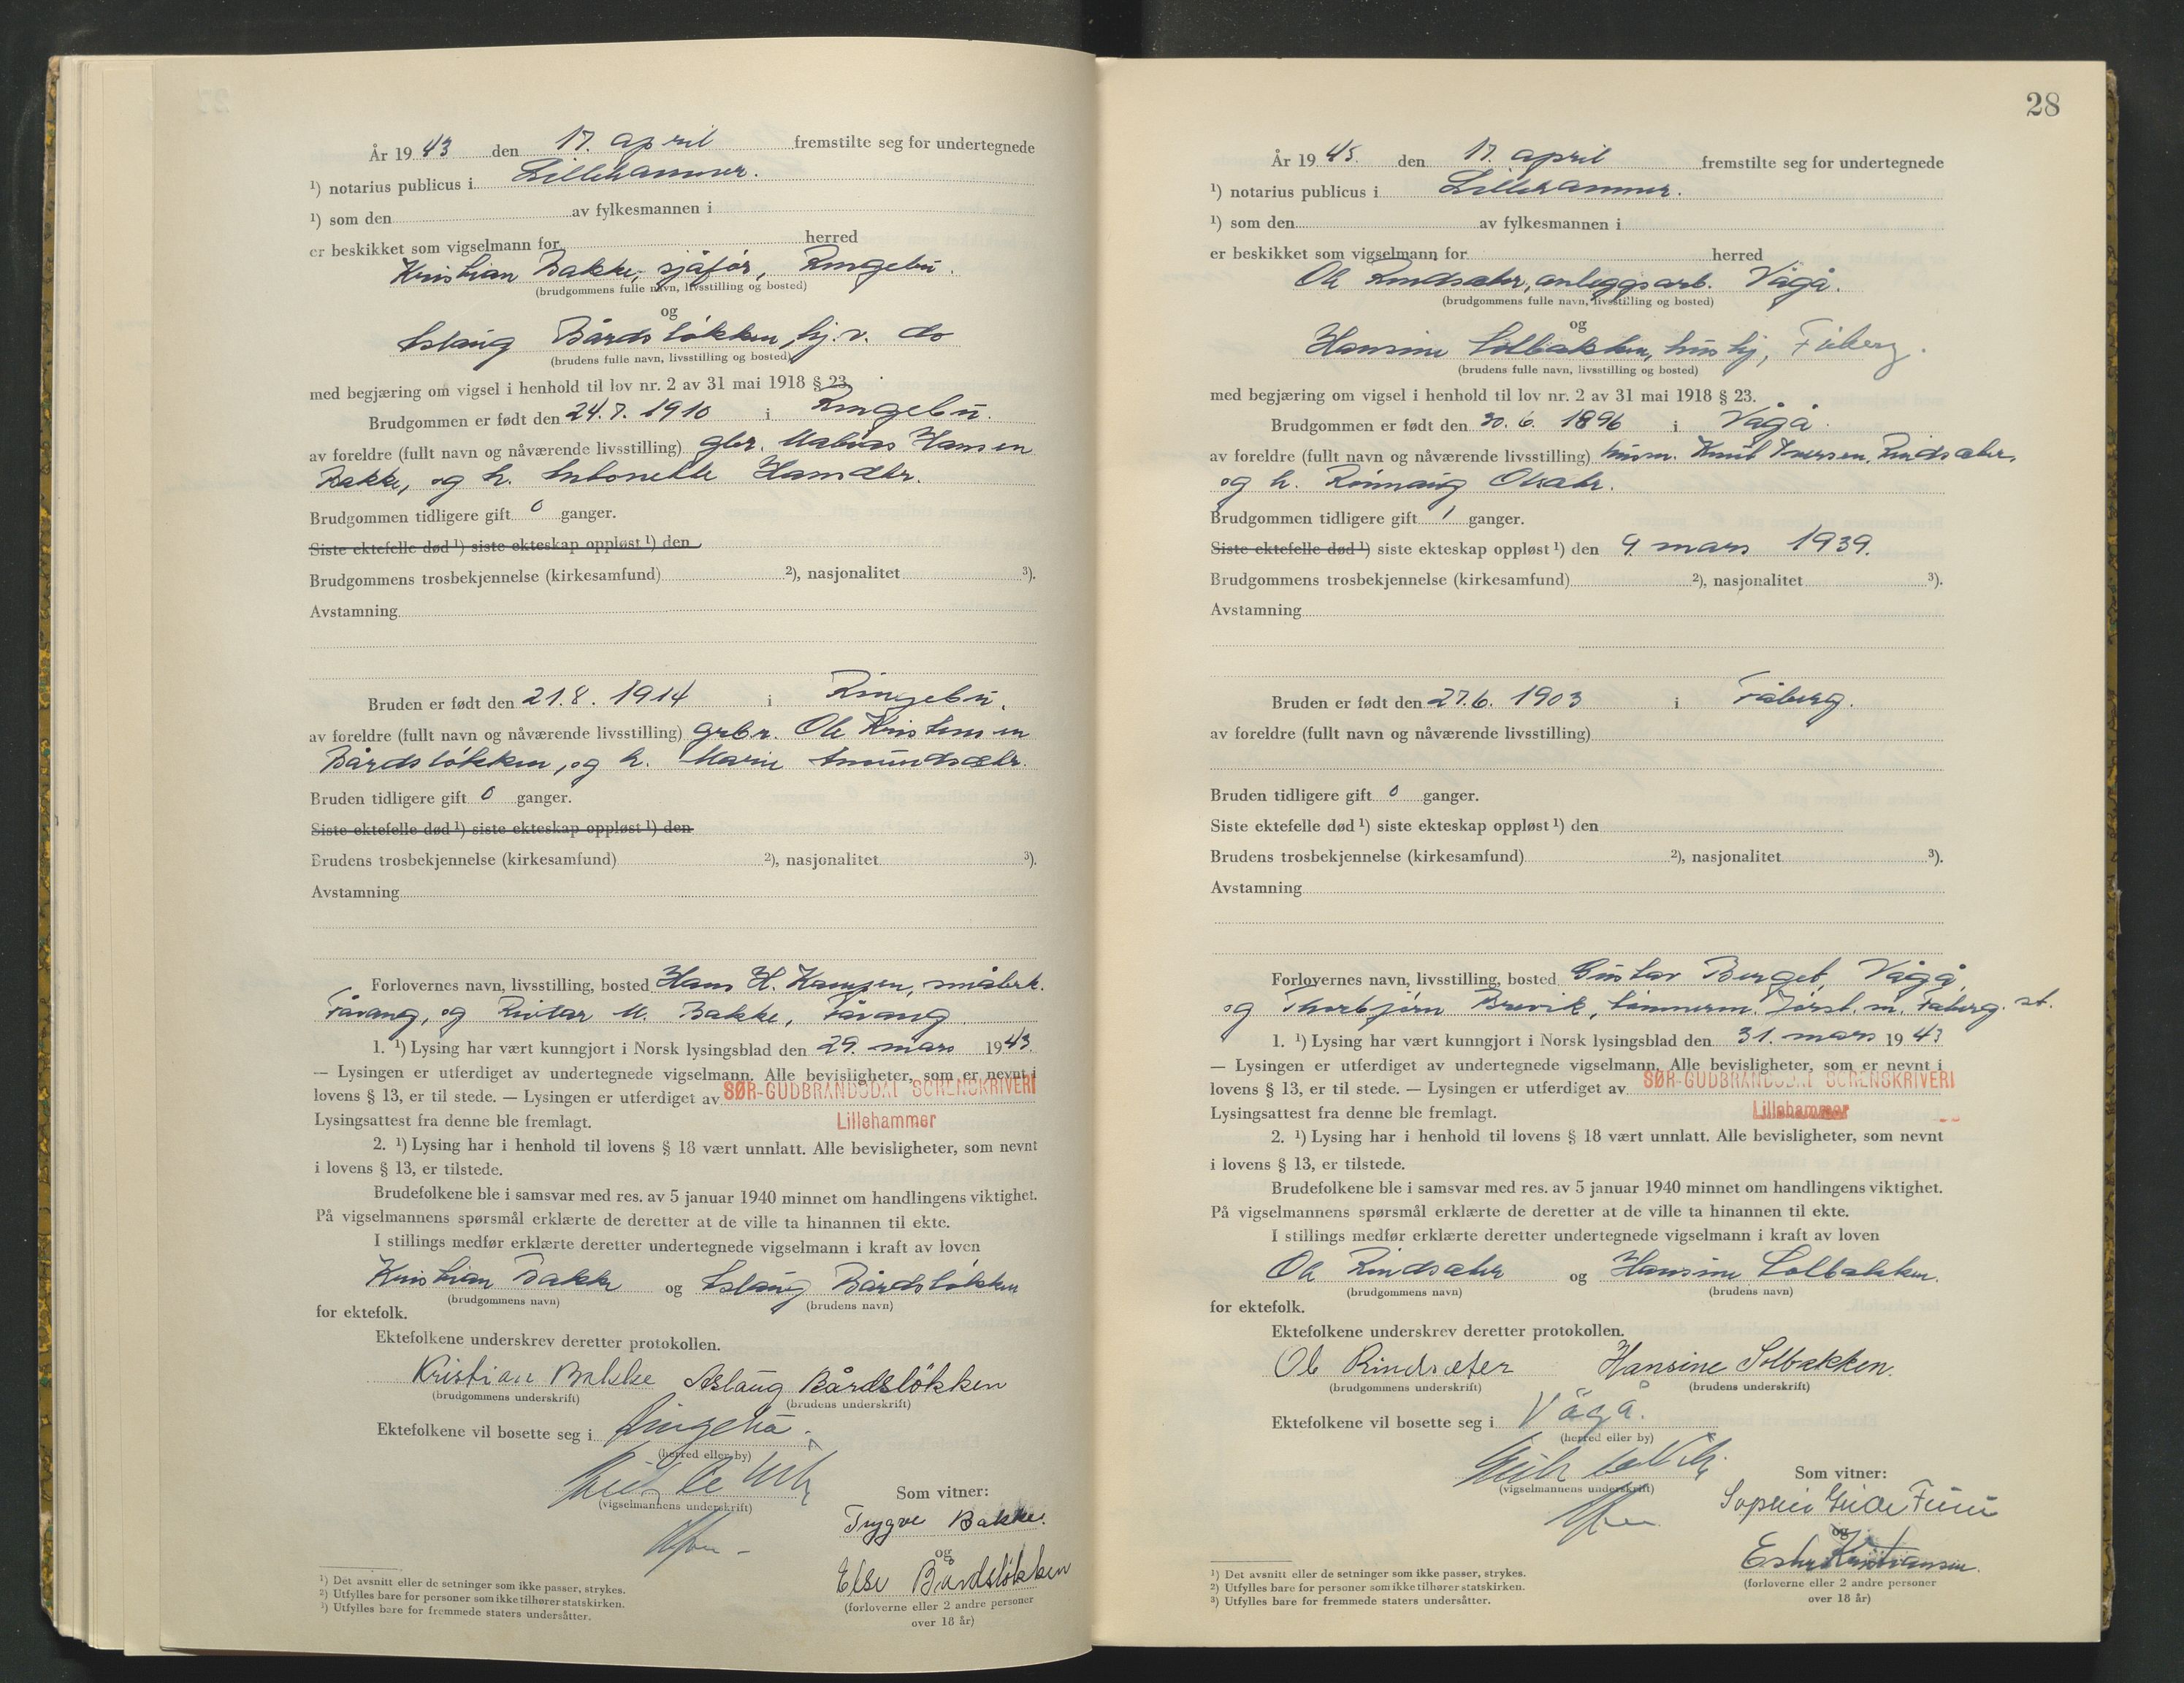 År 19 43 den 17. april fremstilte seg for undertegnede
¹) notarius publicus i Lillehammer.
¹) som den av fylkesmannen i
er beskikket som vigselmann for herred
Kristian Bakke, sjåfør, Ringebu.
(brudgommens fulle navn, livsstilling og bosted)
og
Aslaug Bårdsløkken, hj.v. do
(brudens fulle navn, livsstilling og bosted)
med begjæring om vigsel i henhold til lov nr. 2 av 31 mai 1918 § 23.
Brudgommen er født den 24.7.1910 i Ringebu.
av foreldre (fullt navn og nåværende livsstilling) gbr. Mathias Hansen
Bakke, og h. Antonette Hansdtr.
Brudgommen tidligere gift 0 ganger.
Siste ektefelle død ¹) siste ekteskap oppløst ¹) den
Brudgommens trosbekjennelse (kirkesamfund) ²), nasjonalitet ³).
Avstamning
Bruden er født den 21.8.1914 i Ringebu.
av foreldre (fullt navn og nåværende livsstilling) grbr. Ole Kristensen
Bårdsløkken, og h. Marie Amundsdtr.
Bruden tidligere gift 0 ganger.
Siste ektefelle død ¹) siste ekteskap oppløst ¹) den
Brudens trosbekjennelse (kirkesamfund) ²), nasjonalitet ³).
Avstamning
Forlovernes navn, livsstilling, bosted Hans H. Hansen, småbrk.
Fåvang, og Reidar M. Bakke, Fåvang
1. ¹) Lysing har vært kunngjort i Norsk lysingsblad den 29. mars 1943.
— Lysingen er utferdiget av undertegnede vigselmann. Alle bevisligheter, som er nevnt i
lovens § 13, er til stede. — Lysingen er utferdiget av SØR-GUDBRANDSDAL SORENSKRIVERI
Lysingsattest fra denne ble fremlagt. Lillehammer
2. ¹) Lysing har i henhold til lovens § 18 vært unnlatt. Alle bevisligheter, som nevnt
i lovens § 13, er tilstede.
Brudefolkene ble i samsvar med res. av 5 januar 1940 minnet om handlingens viktighet.
På vigselmannens spørsmål erklærte de deretter at de ville ta hinannen til ekte.
I stillings medfør erklærte deretter undertegnede vigselmann i kraft av loven
Kristian Bakke og Aslaug Bårdsløkken
(brudgommens navn) (brudens navn)
for ektefolk.
Ektefolkene underskrev deretter protokollen.
Kristian Bakke Aslaug Bårdsløkken
(brudgommens underskrift) (brudens underskrift)
Ektefolkene vil bosette seg i Ringebu.
(herred eller by)
(vigselmannens underskrift)
Som vitner:
Trygve Bakke.
og
Else Bårdsløkken
(forloverne eller 2 andre personer
over 18 år)
¹) Det avsnitt eller de setninger som ikke passer, strykes.
²) Utfylles bare for personer som ikke tilhører statskirken.
³) Utfylles bare for fremmede staters undersåtter.
28
År 19 43. den 17. april fremstilte seg for undertegnede
¹) notarius publicus i Lillehammer.
¹) som den av fylkesmannen i
er beskikket som vigselmann for herred
Ole Rindsæter, anleggsarb. Vågå.
(brudgommens fulle navn, livsstilling og bosted)
og
Hansine Solbakken, hushj, Fåberg.
(brudens fulle navn, livsstilling og bosted)
med begjæring om vigsel i henhold til lov nr. 2 av 31 mai 1918 § 23.
Brudgommen er født den 30.6.1896 i Vågå.
av foreldre (fullt navn og nåværende livsstilling) husm. Knut Iversen Rindsæter,
og h. Rønnaug Olsdtr.
Brudgommen tidligere gift 1 ganger.
Siste ektefelle død ¹) siste ekteskap oppløst ¹) den 9. mars 1939.
Brudgommens trosbekjennelse (kirkesamfund) ²), nasjonalitet ³).
Avstamning
Bruden er født den 27.6.1903 i Fåberg.
av foreldre (fullt navn og nåværende livsstilling)
Bruden tidligere gift 0 ganger.
Siste ektefelle død ¹) siste ekteskap oppløst ¹) den
Brudens trosbekjennelse (kirkesamfund) ²), nasjonalitet ³).
Avstamning
Forlovernes navn, livsstilling, bosted Gustav Berget, Vågå,
og Thorbjørn Brevik, tømmerm. Jørst.m. Fåberg. st.
1. ¹) Lysing har vært kunngjort i Norsk lysingsblad den 31. mars 1943
— Lysingen er utferdiget av undertegnede vigselmann. Alle bevisligheter, som er nevnt i
lovens § 13, er til stede. — Lysingen er utferdiget av SØR-GUDBRANDSDAL SORENSKRIVERI
Lysingsattest fra denne ble fremlagt. Lillehammer
2. ¹) Lysing har i henhold til lovens § 18 vært unnlatt. Alle bevisligheter, som nevnt
i lovens § 13, er tilstede.
Brudefolkene ble i samsvar med res. av 5 januar 1940 minnet om handlingens viktighet.
På vigselmannens spørsmål erklærte de deretter at de ville ta hinannen til ekte.
I stillings medfør erklærte deretter undertegnede vigselmann i kraft av loven
Ole Rindsæter og Hansine Solbakken.
(brudgommens navn) (brudens navn)
for ektefolk.
Ektefolkene underskrev deretter protokollen.
Ole Rindsæter Hansine Solbakken.
(brudgommens underskrift) (brudens underskrift)
Ektefolkene vil bosette seg i Vågå.
(herred eller by)
(vigselmannens underskrift)
Som vitner:
og
Esther Kristiansen.
(forloverne eller 2 andre personer
over 18 år)
¹) Det avsnitt eller de setninger som ikke passer, strykes.
²) Utfylles bare for personer som ikke tilhører statskirken.
³) Utfylles bare for fremmede staters undersåtter.